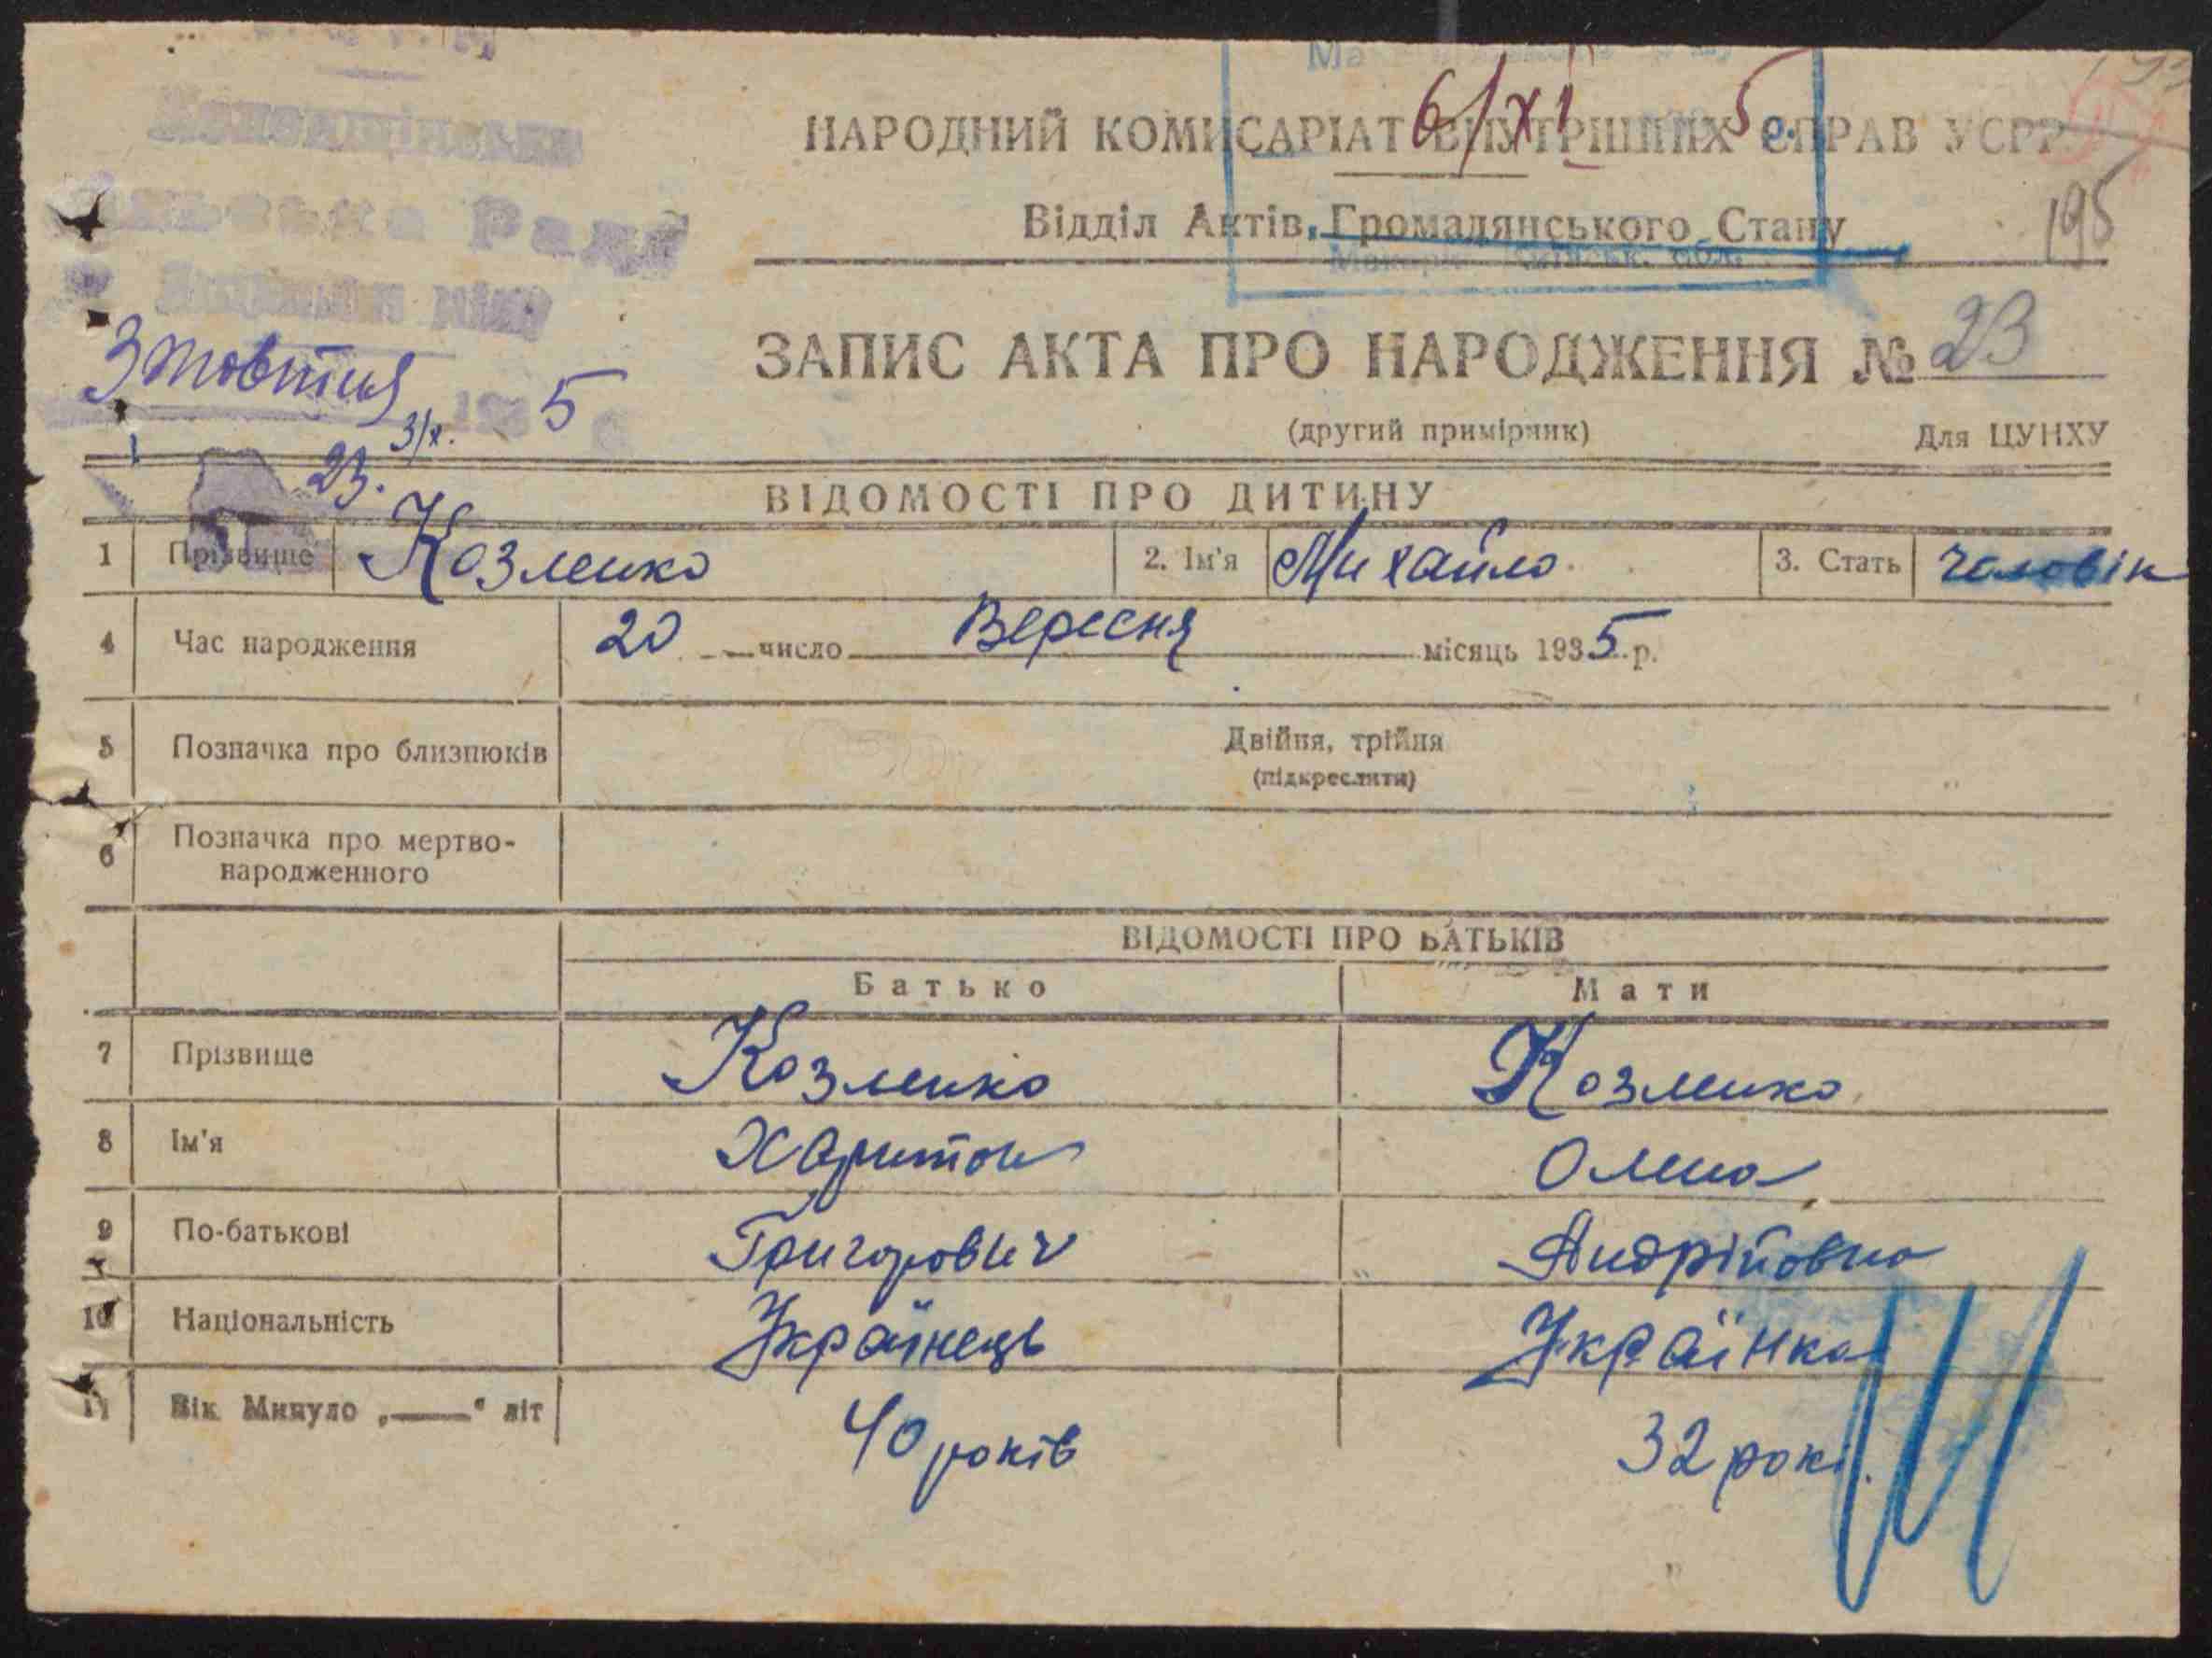 6/XI 5р.
НАРОДНИЙ КОМИСАРІАТ ВНУТРІШНІХ СПРАВ УСРР
Відділ Актів Громадянського Стану
195
Рада
3 жовтня 193 5
3/х.
23.
ЗАПИС АКТА ПРО НАРОДЖЕННЯ № 23
(другий примірник) Для ЦУНХУ
ВІДОМОСТІ ПРО ДИТИНУ
1 Прізвище Козленко 2. Ім'я Михайло 3. Стать чоловік
4 Час народження 20 число Вересня місяць 1935 р.
5 Позначка про близнюків Двійня, трійня
(підкреслити)
6 Позначка про мертво-
народженного
ВІДОМОСТІ ПРО БАТЬКІВ
Батько Мати
7 Прізвище Козленко Козленко
8 Ім'я Харитон Олена
9 По-батькові Григорович Андріївна
10 Національність Українець Українка
11 Вік Минуло „——" літ 40 років 32 рокі.